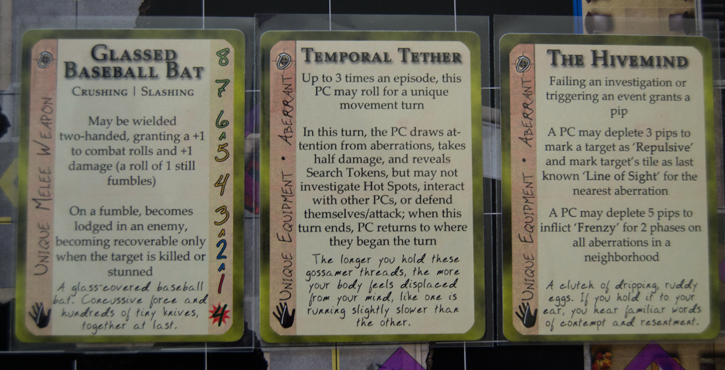 GLASSED
BASEBALL BAT
CRUSHING | SLASHING
May be wielded
two-handed, granting a +1
to combat rolls and +1
damage (a roll of 1 still
fumbles)
On a fumble, becomes
lodged in an enemy,
becoming recoverable only
when the target is killed or
stunned
A glass-covered baseball
bat. Concussive force and
hundreds of tiny knives,
together at last.
UNIQUE MELEE WEAPON
8
7
6
5
4
3
2
1
4
TEMPORAL TETHER
Up to 3 times an episode, this
PC may roll for a unique
movement turn
In this turn, the PC draws at-
tention from aberrations, takes
half damage, and reveals
Search Tokens, but may not
investigate Hot Spots, interact
with other PCs, or defend
themselves/attack; when this
turn ends, PC returns to where
they began the turn
The longer you hold these
gossamer threads, the more
your body feels displaced
from your mind, like one is
running slightly slower than
the other.
UNIQUE EQUIPMENT • ABERRANT
THE HIVEMIND
Failing an investigation or
triggering an event grants a
pip
A PC may deplete 3 pips to
mark a target as 'Repulsive'
and mark target's tile as last
known 'Line of Sight' for the
nearest aberration
A PC may deplete 5 pips to
inflict 'Frenzy' for 2 phases on
all aberrations in a
neighborhood
A clutch of dripping, ruddy
eggs. If you hold it to your
ear, you hear familiar words
of contempt and resentment.
UNIQUE EQUIPMENT • ABERRANT